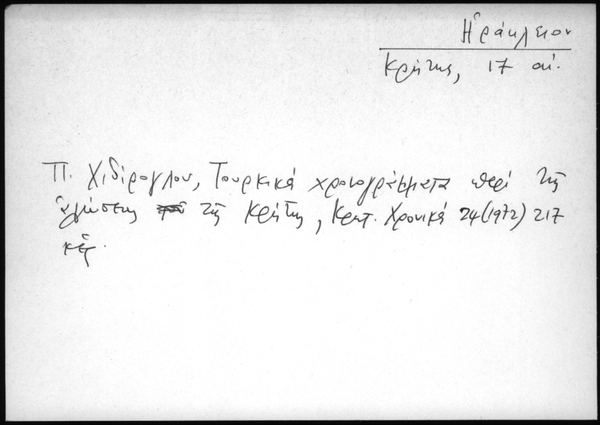 Ἡράκλειον
Κρήτης, 17 αἰ.
Π. Χιδίρογλου, Τουρκικά χρονογράμματα περί τῆς
ἁλώσεως τῆς Κρήτης, Κρητ. Χρονικά 24(1972) 217
κἑ.